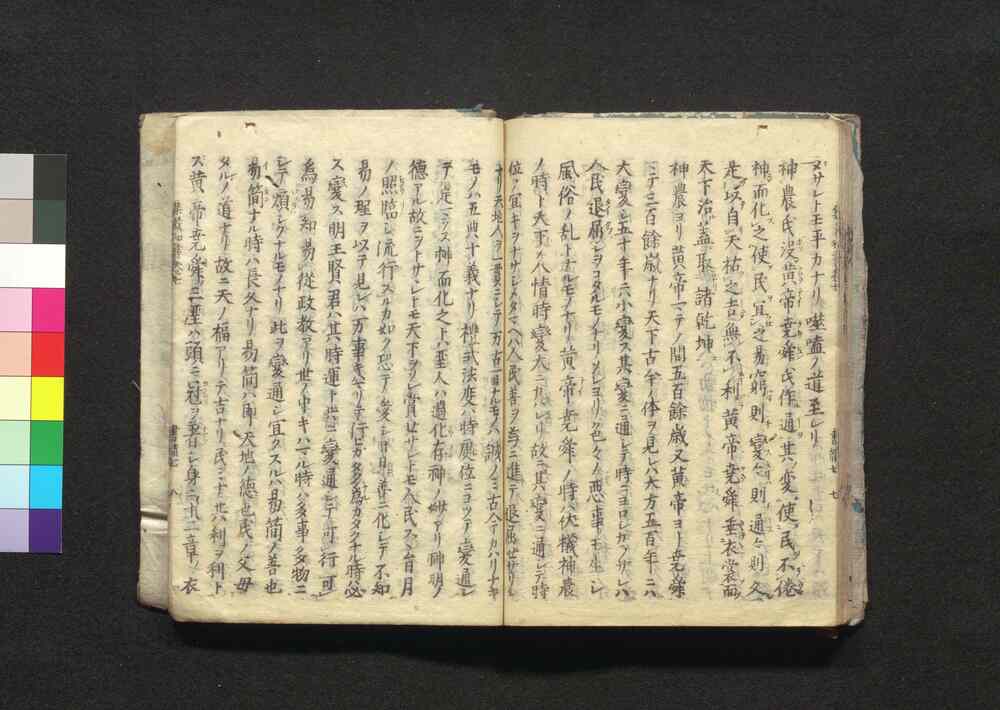 ヌサレトモ平カナリ噬嗑ノ道至レリ
神農氏没黄帝堯舜氏作通其変使民不倦
神而化之使民宜之易窮則変変則通通則久
是以自天祐之吉無不利黄帝堯舜垂衣裳而
天下治蓋取諸乾坤
神農ヨリ黄帝マテノ間五百餘歳又黄帝ヨリ堯舜
三百餘歳ナリ天下古今ノ体ヲ見レハ大方五百年ニハ
大変シ五十年ニハ小変ス其変ニ通シテ時ニヨロシカラサレハ
人民退屈シヲコタルモノナリソレヨリ色々ノ悪事モ生シ
風俗ノ乱トナルモノナリ黄帝堯舜ノ時ハ伏犠神農
ノ時ト天下ノ人情時変大ニカハレリ故ニ其変ニ通シテ時
位ノ宜キヲナサシメタマヘハ人民善ヲ為ニ進テ退屈セサリシ
ナリ天地人ヲ一貫ニシテ万古一日ナルモノハ誠ノミ古今カハリナキ
モノハ五典十義ナリ禮式法度ハ時處位ニヨツテ変通シ
テ定ラス神而化之トハ至人ハ過化存神ノ妙アリ神明ノ
徳アル故ニヲトサントモ天下ヲソレ賞セサレトモ人民スヽム日月
ノ照臨シ流行スルカ如ク恐テ変シ日月ニ善ニ化シテ不知
易ノ理ヲ以テ見レハ万事キワマリテ行ヒカタク為カタキ時必
ス変ス明王賢君ハ其時運ト共ニ変通シテ可行可
為易知易従政教アリ世ノ中キハマル時ハ多事多物ニ
シテ煩シクナルモノナリ此ヲ変通シ宜クスルハ易簡ノ善也
易簡ナル時ハ長久ナリ易簡ハ即天地ノ徳也民ノ父母
タルノ道ナリ故ニ天ノ福アリテ吉ナリ民ミナ其利ヲ利ト
ス黄帝堯舜三聖ハ頭ニ冠ヲ着シ身ニ十二章ノ衣